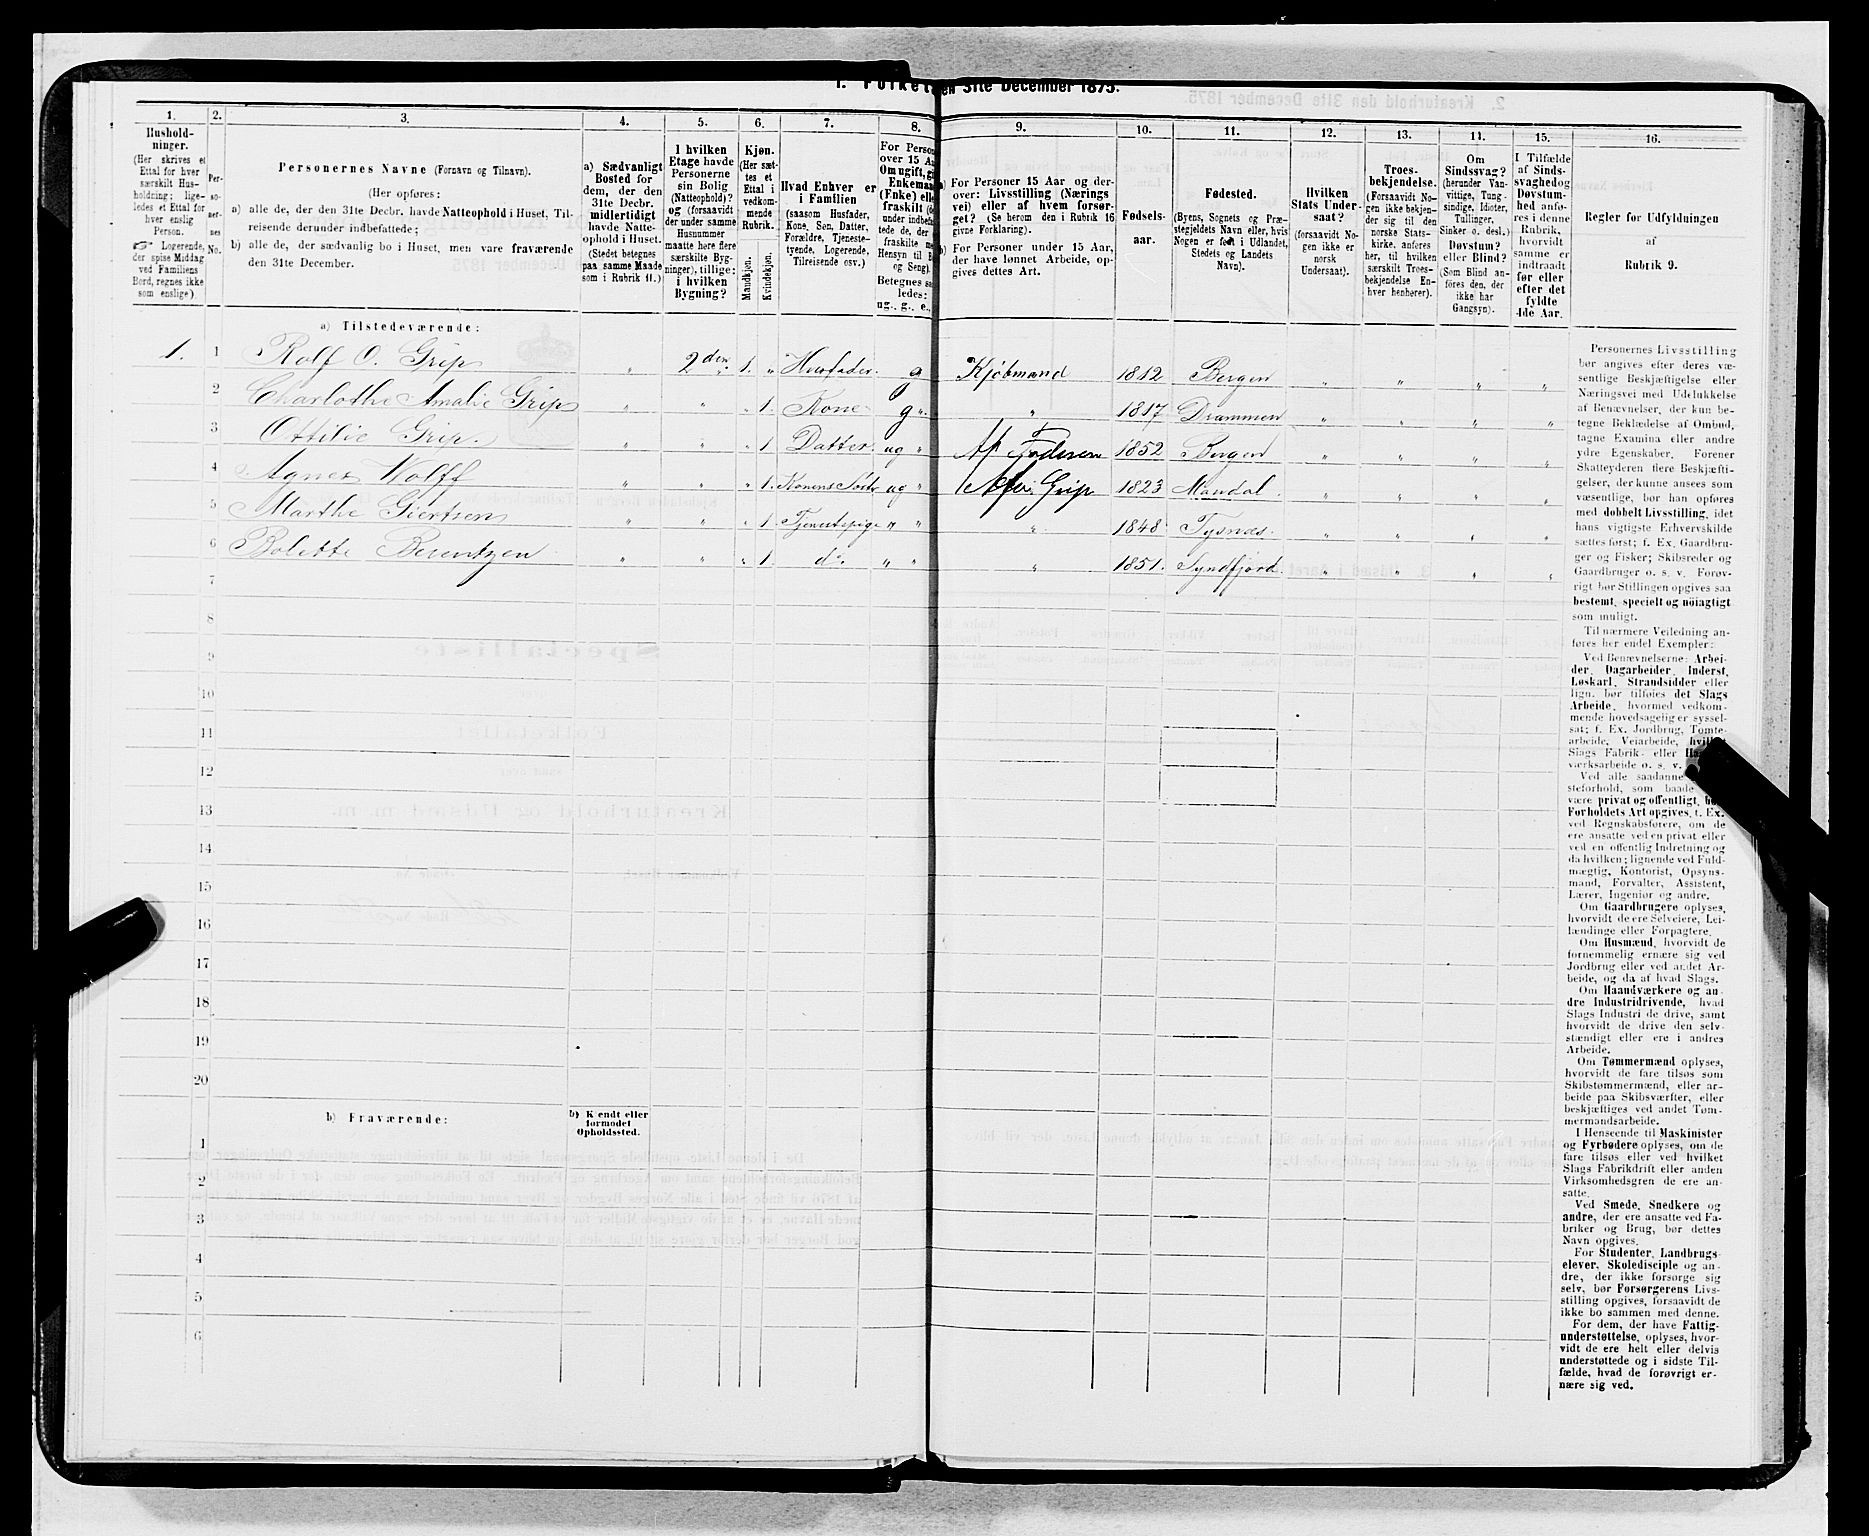 1. Folket en 31te December 1875.
1. 2. 3. 4. 5. 6. 7. 8. 9. 10. 11. 12. 13. 14. 15. 16.
Hushold-
ninger.
(Her skrives et
Ettal for hver
særskilt Hus-
holdning; lige-
ledes et Ettal for
hver enslig
Person.
☞ Logerende,
der spise Middag
ved Familiens
Bord, regnes ikke
som enslige).
Per-
so-
ner-
nes
No.
Personernes Navne (Fornavn og Tilnavn).
(Her opføres:
a) alle de, der den 31te Decbr. havde Natteophold i Huset, Til-
reisende derunder indbefattede;
b) alle de, der sædvanlig bo i Huset, men vare fraværende
den 31te December.
a) Sædvanligt
Bosted for
dem, der den
31te Decbr.
midlertidigt
havde Natte-
ophold i Huset.
(Stedet betegnes
paa samme Maade
som i Rubrik 11.)
I hvilken
Etage havde
Personerne
sin Bolig
(Natteophold)?
og (forsaavidt
der under samme
Husnummer
maatte høre flere
særskilte Byg-
ninger), tillige:
i hvilken
Bygning?
Kjøn.
(Her sæt-
tes et
Ettal i
vedkom-
mende
Rubrik.
Mandkjøn.
Kvindekjøn.
Hvad Enhver er
i Familien
(saasom Husfader,
Kone, Søn, Datter,
Forældre, Tjeneste-
tyende, Logerende,
Tilreisende osv.)
For Person
over 15 Aa
Om ugift, gi
Enkeman
(Enke) elle
fraskilt (de
under indbefat
tede de, der
fraskilte me
Hensyn til B
og Seng).
Betegnes sa
ledes:
ug., g., e.,
a) For Personer 15 Aar og der-
over: Livsstilling (Nærings-
vei) eller af hvem forsør-
get? (Se herom den i Rubrik 16
givne Forklaring).
b) For Personer under 15 Aar,
der have lønnet Arbeide, op-
gives dettes Art.
Fødsels-
aar.
Fødested.
(Byens, Sognets og Præ-
stegjeldets Navn eller, hvis
Nogen er født i Udlandet,
Stedets og Landets
Navn).
Hvilken
Stats Under-
saat?
(forsaavidt No-
gen ikke er
norsk
Undersaat).
Troes-
bekjendelse.
(Forsaavidt No-
gen ikke bekjen-
der sig til den
norske Stats-
kirke, anføres
her, til hvilken
særskilt Troes-
bekjendelse En-
hver henhører).
Om
Sindssvag?
(herunder Van-
vittige, Tung-
sindige, Idioter,
Tullinger,
Sinker o. desl.)
Døvstum?
eller Blind?
(Som Blind an-
føres den, der
ikke har
Gangsyn).
I Tilfælde
af Sinds-
svaghed og
Døvstum-
hed anfø-
res i denne
Rubrik,
hvorvidt
samme er
indtraadt
før eller
efter det
fyldte
4de Aar.
Regler for Udfyldningen
af
Rubrik 9.
a) Tilstedeværende:
1. 1 Rolf O. Grip " 2den 1. " Huusfader. g Kjøbmand 1812 Bergen " " " "
2 Charlothe Amalie Grip " " " 1. Kone g " " 1817 Drammen " " " "
3 Ottilie Grip. " " " 1 Datter. ug " Af Faderen 1852 Bergen " " " "
4 Agnes Wolff " " " 1. Konens Søster ug " Grip 1823 Mandal. " " " "
5 Marthe Giertsen " " " 1 Tjenestepige " " " 1848 Tysnæs. " " " "
6 Bolette Berentzen " " " 1 do. " " " 1851. Syndfjord. " " " "
7
8
9
10
11
12
13
14
15
16
17
18
19
20
b) Fraværende:
b) Kjendt eller
formodet
Opholdssted.
1
2
3
4
5
6
Personernes Livsstilling
bør angives efter deres væ-
sentlige Beskjæftigelse eller
Næringsvei med Udelukkelse
af Benævnelser, der kun be-
tegne Beklædelse af Ombud,
tagne Examina eller andre
ydre Egenskaber. Forener
Skatteyderen flere Beskjæfti-
gelser, der kunne ansees som
væsentlige, bør han opføres
med dobbelt Livsstilling, idet
hans vigtigste Erhvervskilde
sættes først; f. Ex. Gaardbru-
ger og Fisker; Skibsreder og
Gaardbruger o. s. v. Forøv-
rigt bør Stillingen opgives saa
bestemt, specielt og nöiagtigt
som muligt.
Til nærmere Veiledning an-
føres her endel Exempler:
Ved Benævnelserne: Arbei-
der, Dagarbeider, Inderst,
Løskarl, Strandsidder eller
lign. bør tilføies det Slags
Arbeide, hvormed vedkom-
mende hovedsagelig er syssel-
sat; f. Ex. Jordbrug, Tomte-
arbeide, Veiarbeide, hvilket
Slags Fabrik- eller Ha
værksarbeide o. s. v.
Ved alle saadanne
steforhold, som baade
være privat og offentlig, bø
Forholdets Art opgives, f. Ex.
ved Regnskabsførere, om de
ere ansatte ved en privat eller
ved en offentlig Indretning og
da hvilken; lignende ved Fuld-
mægtig, Kontorist, Opsyns-
mand, Forvalter, Assistent,
Lærer, Ingeniør og andre.
Om Gaardbrugere oplyses,
hvorvidt de ere Selveiere, Lei-
lændinge eller Forpagtere.
Om Husmænd, hvorvidt de
fornemmelig ernære sig ved
Jordbrug eller ved andet Ar-
beide, og da af hvad Slags.
Om Haandværkere og an-
dre Industridrivende, hvad
Slags Industri de drive, samt
hvorvidt de drive den selv-
stændigt eller ere i andres
Arbeide.
Om Tømmermænd oplyses,
hvorvidt de fare tilsøs som
Skibstømmermænd, eller ar-
beide paa Skibsværfter, eller
beskjæftiges ved andet Tøm-
mermandsarbeide.
I Henseende til Maskinister
og Fyrbødere oplyses, om de
fare tilsøs eller ved hvilket
Slags Fabrikdrift eller anden
Virksomhedsgren de ere an-
satte.
Ved Smede, Snedkere og
andre, der ere ansatte ved Fa-
briker og Brug, bør dettes
Navn opgives.
For Studenter, Landbrugs-
elever, Skoledisciple og an-
dre, der ikke forsørge sig
selv, bør Forsørgerens Livs-
stilling opgives, forsaavidt de
ikke bo sammen med denne.
For dem, der have Fattig-
understøttelse, oplyses, hvor-
vidt de ere helt eller delvis
understøttede og i sidste Til-
fælde, hvad de forøvrigt er-
nære sig ved.